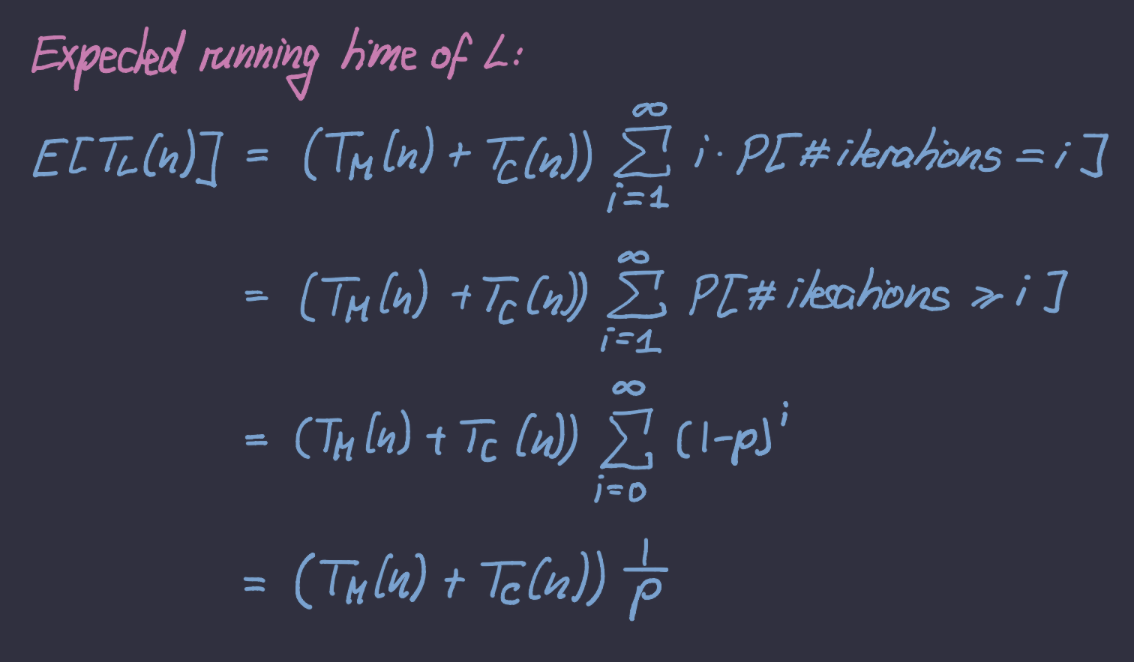 Expected running time of L:
E[T_L(n)] = (T_M(n) + T_C(n)) ∑_{i=1}^{∞} i · P[# iterations = i]
= (T_M(n) + T_C(n)) ∑_{i=1}^{∞} P[# iterations ≥ i]
= (T_M(n) + T_C(n)) ∑_{i=0}^{∞} (1-p)^i
= (T_M(n) + T_C(n)) 1/p